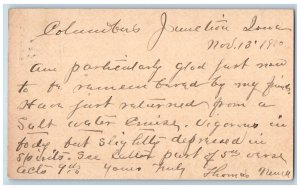 Columbus Junction Iowa
Nov. 13" 1910
Am particularly glad just now
to be remembered by my friends
Have just returned from a
Salt water Cruise. Vigorous in
body but slightly depressed in
spirits. See latter part of 5th verse
Acts 9th yours truly
Thomas